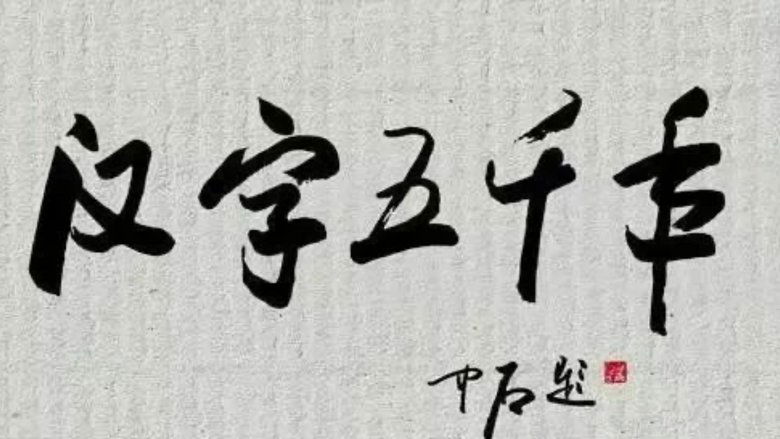 汉字五千年
中石题